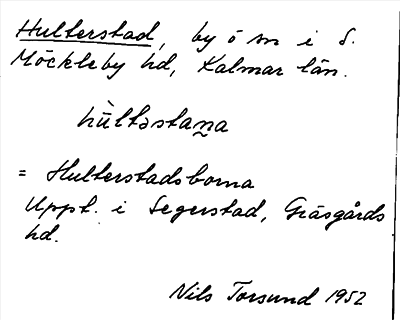 Hulterstad, by ö sn i S.
Möckleby hd, Kalmar län.
hùltəstaṉa
= Hulterstadsborna
Uppt. i Segerstad, Gräsgårds
hd.
Nils Torsund 1952